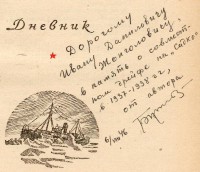 Дневник
Дорогому
Ивану Даниловичу
Жонголовичу
в память о совмест-
ном дрейфе на „Садко"
в 1937-1938 гг,
от автора